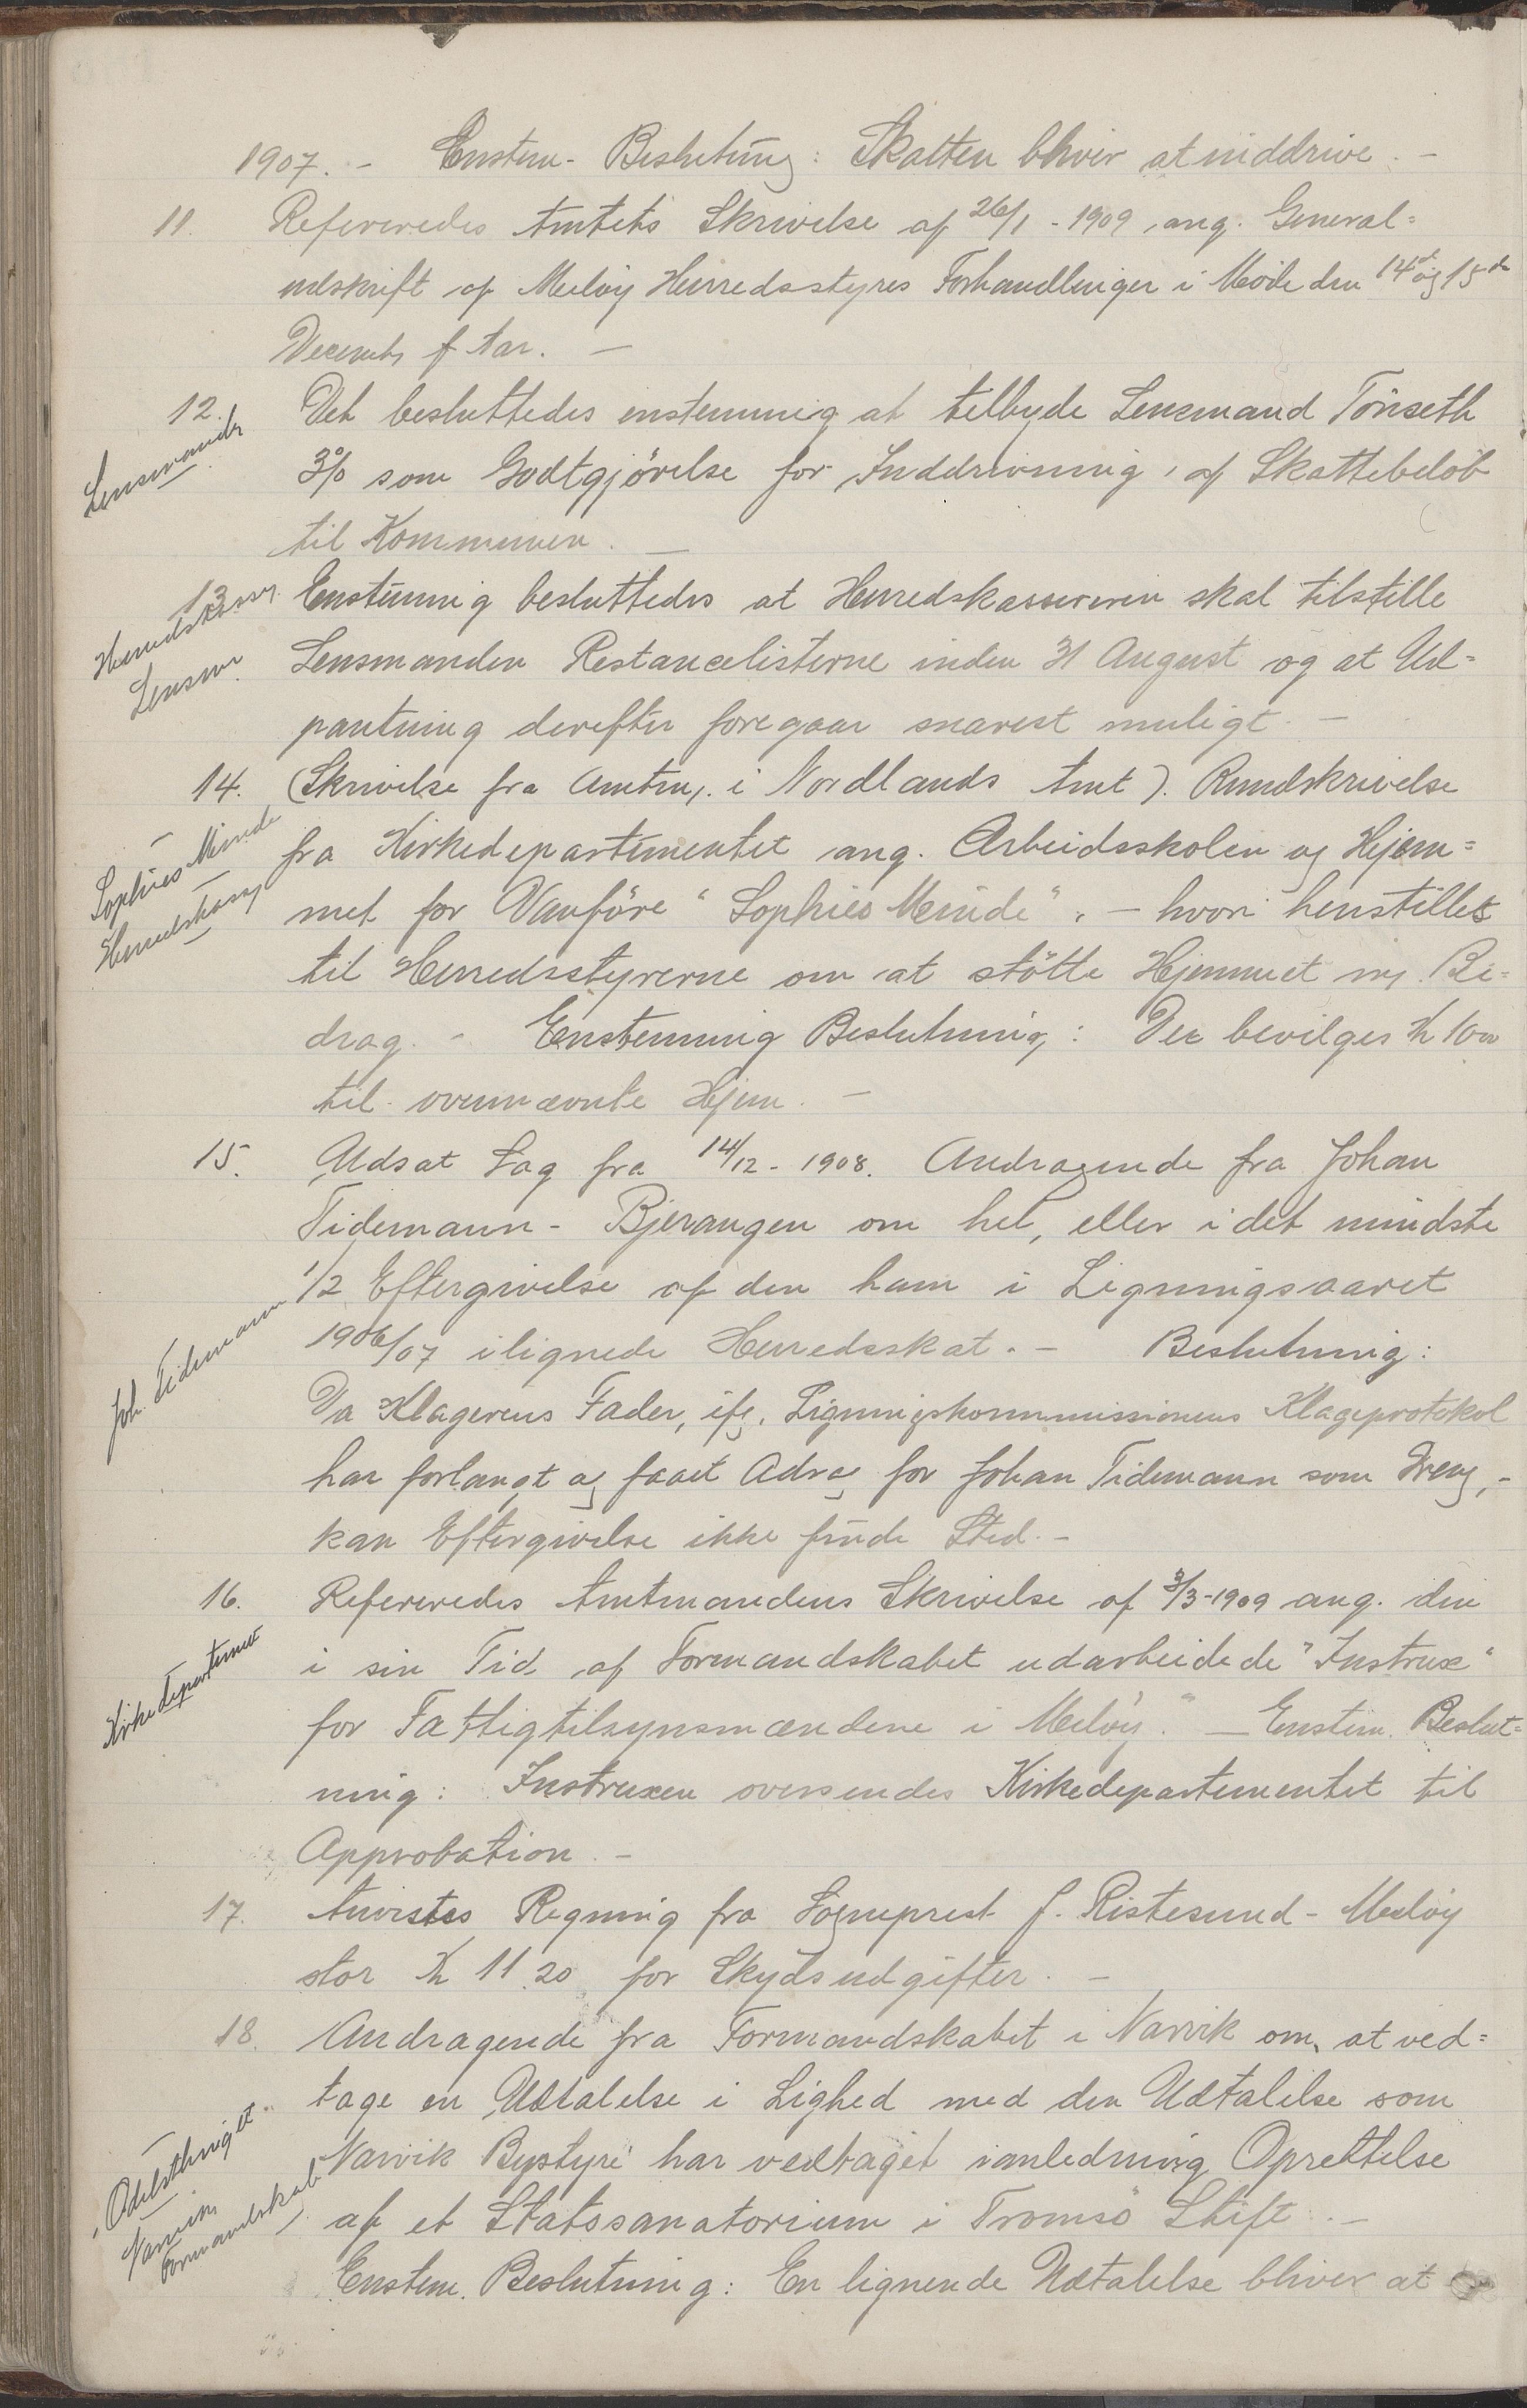 1907. - Enstem. Beslutning: Skatten bliver at inddrive. -
11. Refereredes Amtets Skrivelse af 26/1 - 1909 ang. General=
udskrift af Meløy Herredsstyres Forhandlinger i Møde den 14de og 15de
Decemb. f. Aar. -
12. Det besluttedes enstemmig at tilbyde Lensmand Tönseth
Lensmanden
3% som Godtgjörelse for Inddrivning af Skattebelöb
til Kommunen. -
13. Enstemmig besluttedes at Herredskassereren skal tilstille
Herredskasser.
Lensmanden Restancelisterne inden 31 August og at Ud=
Lensm.
pantning derefter foregaar snarest muligt. -
14. (Skrivelse fra Amtm. i Nordlands Amt). Rundskrivelse
Sophies Minde
fra Kirkedepartementet ang. Arbeidsskolen og Hjem=
Herredskass.
met for Vanföre "Sophies Minde". - hvori henstilles
til Herredsstyrerne om at stötte Hjemmet m. Bi=
drag. - Enstemmig Beslutning: Der bevilges Kr 10
til ovennævnte Hjem. -
15. Udsat Sag fra 14/12 - 1908. Andragende fra Johan
Tidemann - Bjerangen om hel, eller i det mindste
1/2 Eftergivelse af den ham i Ligningsaaret
Joh. Tidemann
1906/07 ilignede Herredsskat. - Beslutning:
Da Klagerens Fader, ifg. Ligningskommissionens Klageprotokol
har forlangt og faaet Adrag for Johan Tidemann som Dreng, -
kan Eftergivelse ikke finde Sted. -
16. Refereredes Amtmandens Skrivelse af 3/3-1909 ang. den
i sin Tid af Formandskabet udarbeidede "Instrux"
Kirkedepartemet
for Fattigtilsynsmændene i Meløy." - Enstem. Beslut=
ning: Instruxen oversendes Kirkedepartementet til
Approbation. -
17. Anvistes Regning fra Sogneprest J. Ristesund - Meløy
stor Kr 11.20 for Skydsudgifter. -
18. Andragende fra Formandskabet i Narvik om, at ved=
tage en Udtalelse i Lighed med den Udtalelse som
Odelsthinget
Narvik Bystyre har vedtaget ianledning Oprettelse
Narvik
Formandskab
af et Statssanatorium i Tromsö Stift. -
Enstem. Beslutning: En lignende Udtalelse bliver at